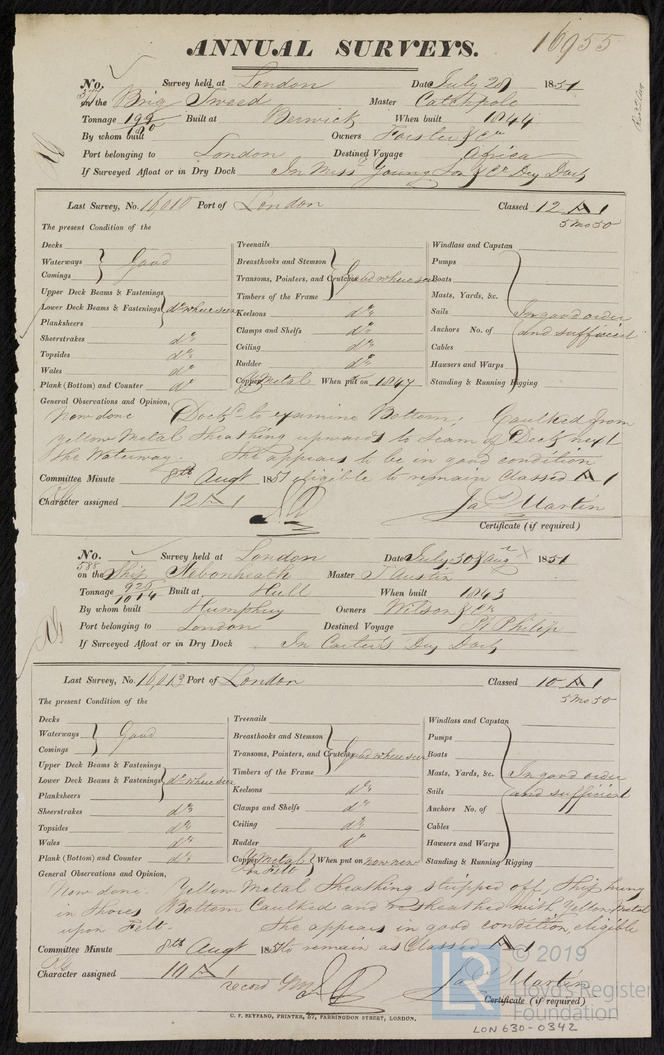 16955
ANNUAL SURVEYS.
No. Survey held at London Date July 28 1851
in the Brig Tweed Master Catchpole
Tonnage 199 Built at Berwick When built 1844
180
By whom built Owners Forster & Co
Port belonging to London Destined Voyage Africa
If Surveyed Afloat or in Dry Dock In Miss Young Son & Co Dry Dock
Last Survey, No. 16,010 Port of London Classed 12 A 1
5 mo 50
The present Condition of the
Decks Treenails Windlass and Capstan
Waterways Good Breasthooks and Stemson Pumps
Comings Transoms, Pointers, and Crutches Good where seen Boats
Upper Deck Beams & Fastenings Timbers of the Frame Masts, Yards, &c.
Lower Deck Beams & Fastenings do where seen Keelsons do Sails In good order
Planksheers Clamps and Shelfs do Anchors No. of and sufficient
Sheerstrakes do Ceiling do Cables
Topsides do Rudder do Hawsers and Warps
Wales do Copper Y Metal When put on 1847 Standing & Running Rigging
Plank (Bottom) and Counter do
General Observations and Opinion,
Now done Dockd to examine Bottom; Caulked from
Yellow Metal Sheathing upwards to Seam of Deck next
the Waterway. She appears to be in good condition
Committee Minute 8th Augt 1851 eligible to remain Classed A 1
Character assigned 12 A 1 Jas Martin
Certificate (if required)
No. Survey held at London Date July 30 & Aug 2 1851
588
on the Ship Nebonheath Master J Austin
Tonnage 925 Built at Hull When built 1843
1014
By whom built Humphrey Owners Wilson & Co
Port belonging to London Destined Voyage Pt Philip
If Surveyed Afloat or in Dry Dock In Carter's Dry Dock
Last Survey, No. 16,013 Port of London Classed 10 A 1
5 mo 50
The present Condition of the
Decks Treenails Windlass and Capstan
Waterways Good Breasthooks and Stemson Pumps
Comings Transoms, Pointers, and Crutches Good where seen Boats
Upper Deck Beams & Fastenings Timbers of the Frame Masts, Yards, &c. In good order
Lower Deck Beams & Fastenings do where seen Keelsons do Sails and sufficient
Planksheers Clamps and Shelfs do Anchors No. of
Sheerstrakes do Ceiling do Cables
Topsides do Rudder do Hawsers and Warps
Wales do Copper Y Metal on Felt When put on now new Standing & Running Rigging
Plank (Bottom) and Counter do
General Observations and Opinion,
Now done. Yellow Metal Sheathing stripped off, Ship hung
in Shores Bottom Caulked and resheathed with Yellow Metal
upon Felt. She appears in good condition, eligible
Committee Minute 8th Augt 1851 to remain as Classed A 1
Character assigned 10 A 1 Jas Martin
record YM
Certificate (if required)
C. F. SEYFANG, PRINTER, 57, FARRINGDON STREET, LONDON.
LR © 2019
Lloyd's Register
Foundation
LON630-0342